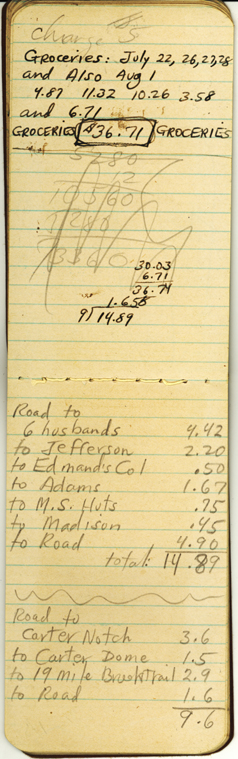 charge 5
Groceries: July 22, 26,27,28
and Also Aug 1
4.87 11.32 10.26 3.58
and 6.71
GROCERIES $36.71 GROCERIES
5280
12
10560
5280
63360
30.03
6.71
36.74
1.658
9)14.89
Road to
6 husbands 4.42
to Jefferson 2.20
to Edmands Col .50
to Adams 1.67
to M.S. Huts .75
to Madison .45
to Road 4.90
total: 14.89
Road to
Carter Notch 3.6
to Carter Dome 1.5
to 19 mile Brook Trail 2.9
to Road 1.6
9.6